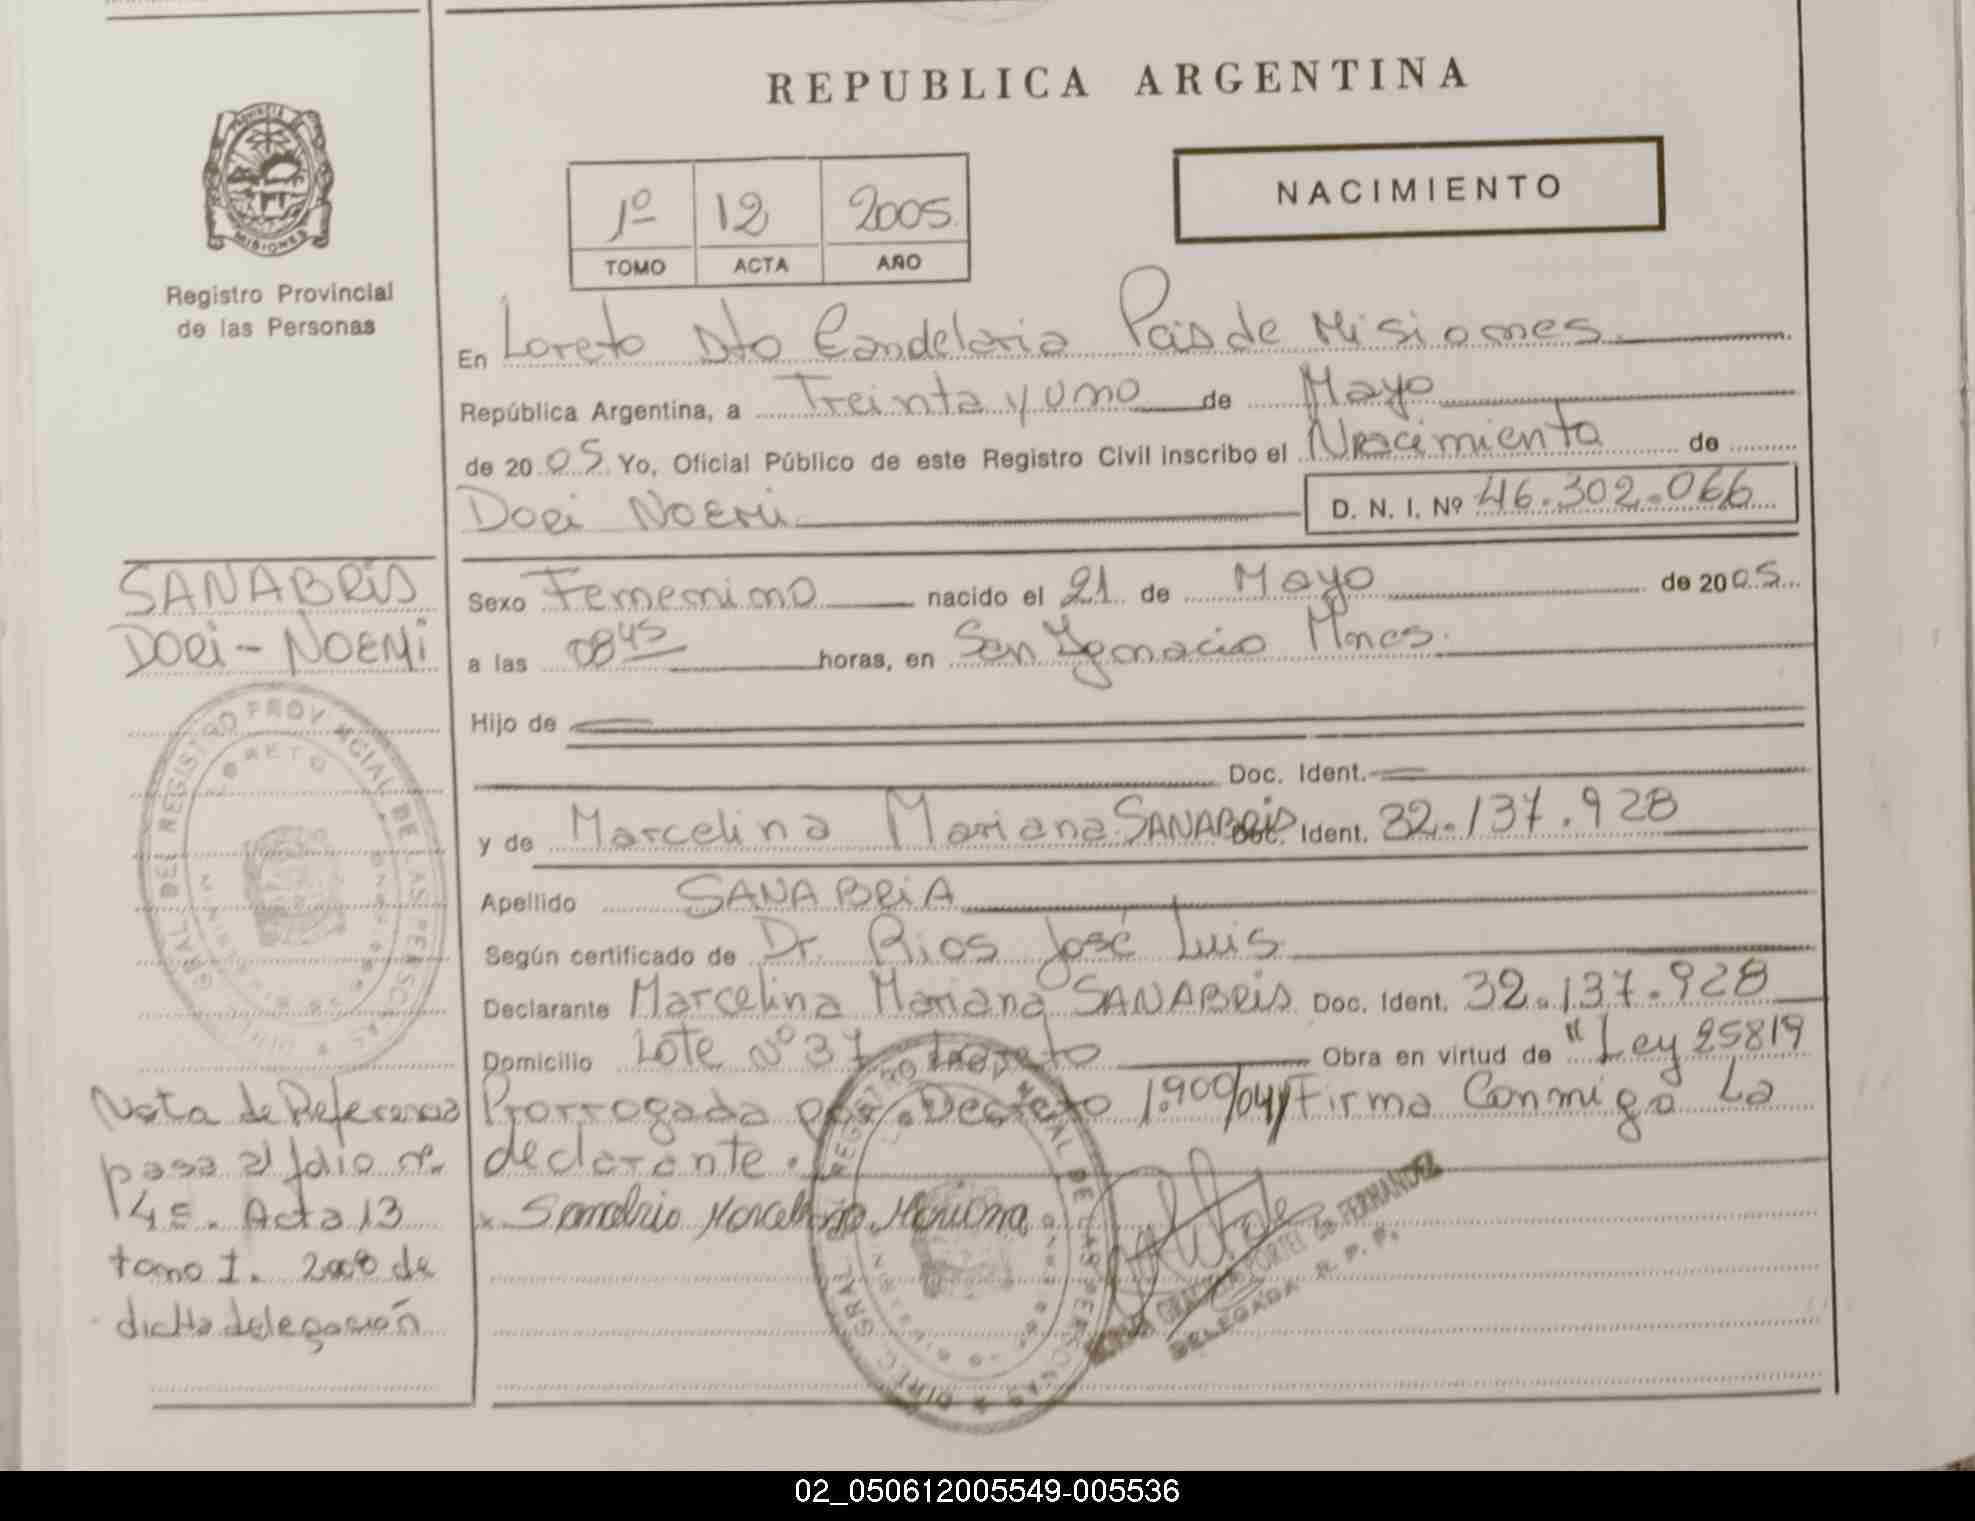 REPUBLICA ARGENTINA
PROVINCIA DE
MISIONES
Registro Provincial
de las Personas
1º 12 2005
TOMO ACTA AÑO
NACIMIENTO
En Loreto Dto Candelaria Pcia de Misiones
República Argentina, a Treinta y uno de Mayo
de 2005 Yo, Oficial Público de este Registro Civil inscribo el Nacimiento de
Dori Noemi D. N. I. Nº 46.302.066
SANABRIA
DORi - NOEMi
Sexo Femenino nacido el 21 de Mayo de 2005
a las 0845 horas, en San Ygnacio Mnes.
Hijo de
Doc. Ident.
y de Marcelina Mariana SANABRIA Doc. Ident. 32.137.928
Apellido SANABRiA
Según certificado de Dr. Rios José Luis
Declarante Marcelina Mariana SANABRIA Doc. Ident. 32.137.928
Domicilio Lote Nº 37 Loreto Obra en virtud de "Ley 25819
Prorrogada por Decreto 1.900/04" Firma Conmigo La
declarante.
Nota de Referencia
pasa al folio nº
14 . Acta 13
tomo I. 2008 de
dicha delegación
Sanabria Marcelina Mariana
DIREC. GRAL. DEL REGISTRO PROVINCIAL DE LAS PERSONAS
LORETO
DIREC. GRAL. DEL REGISTRO PROVINCIAL DE LAS PERSONAS
PORTEL de FERNANDEZ
DELEGADA R. P. P.
02_050612005549-005536